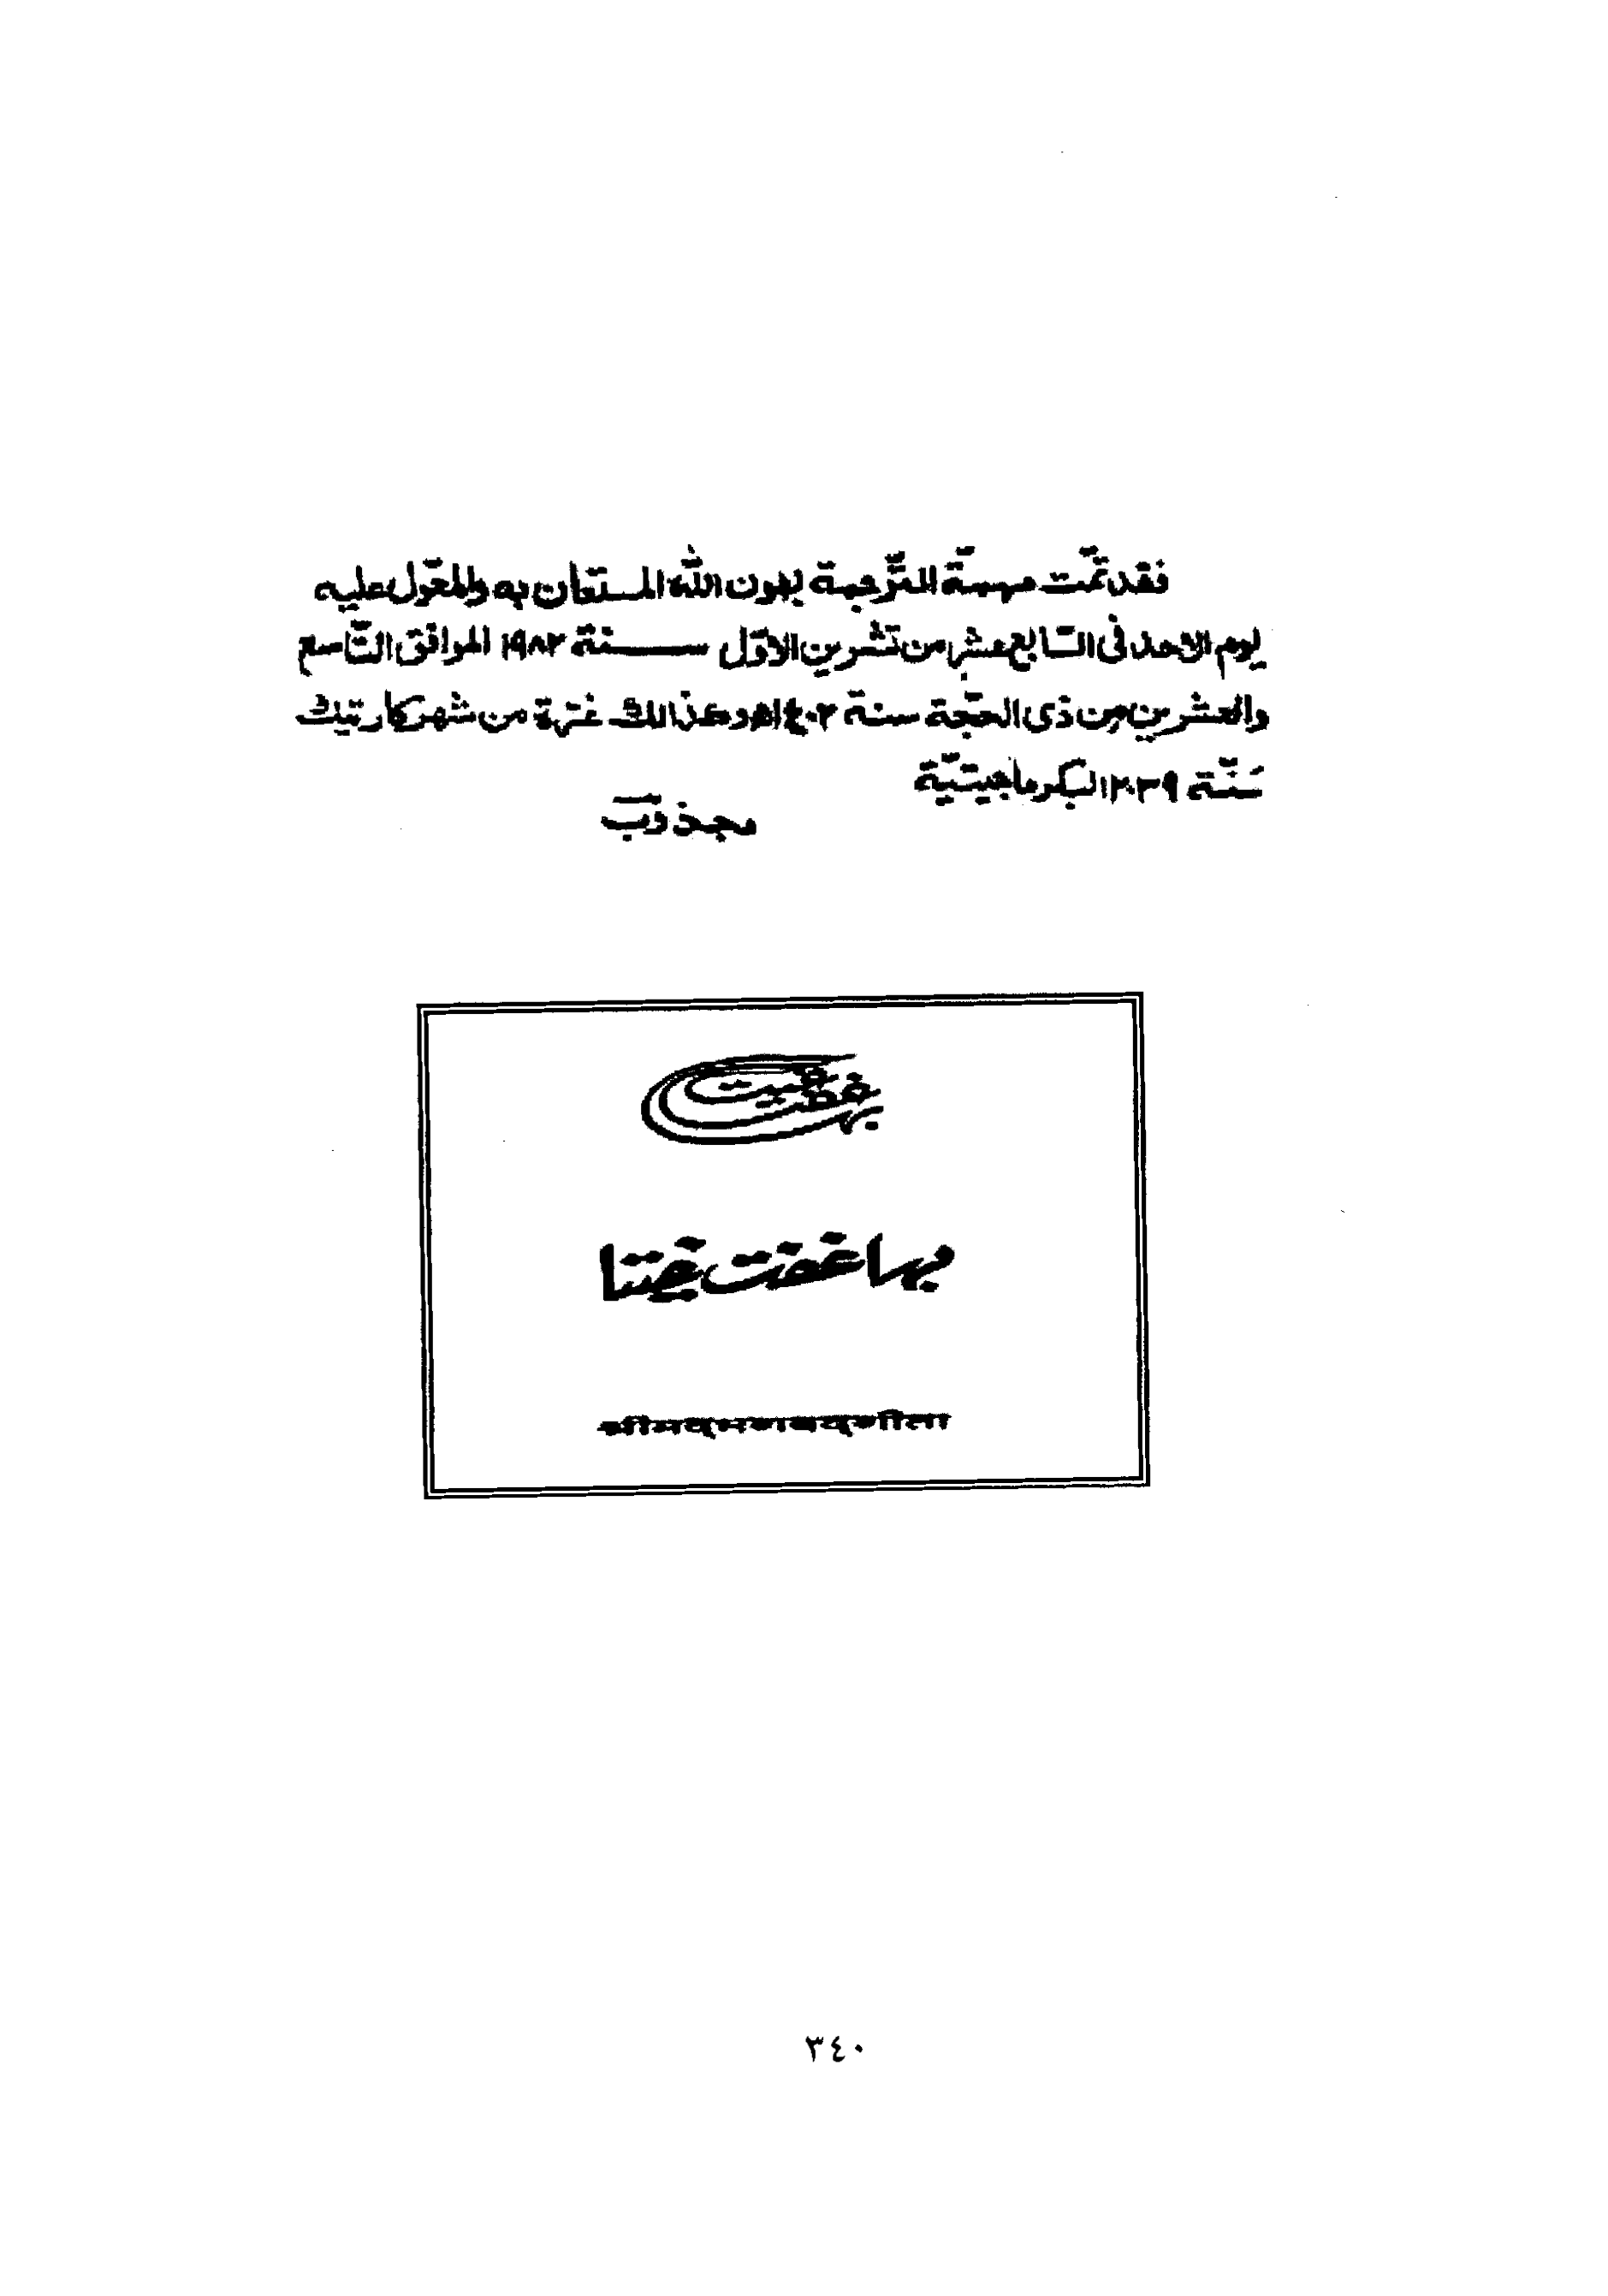 فقد تمّت مهمّة الترّجمة بعون اللّه المستعان به والمعوّل عليه
يوم الاحد فى السّابع عشر من تشرين الاوّل سنة ١٩٨٢ الموافق التّاسع
والعشرين من ذى الحجّة سنة ١٤٠٢ھ وكذالك غرّة من شهر كارتيك
سَنَّة ٢٠٣٩ البكرماجيتيّة
مجذوب
श्रीमद्भगवद्गीता
٣٤٠